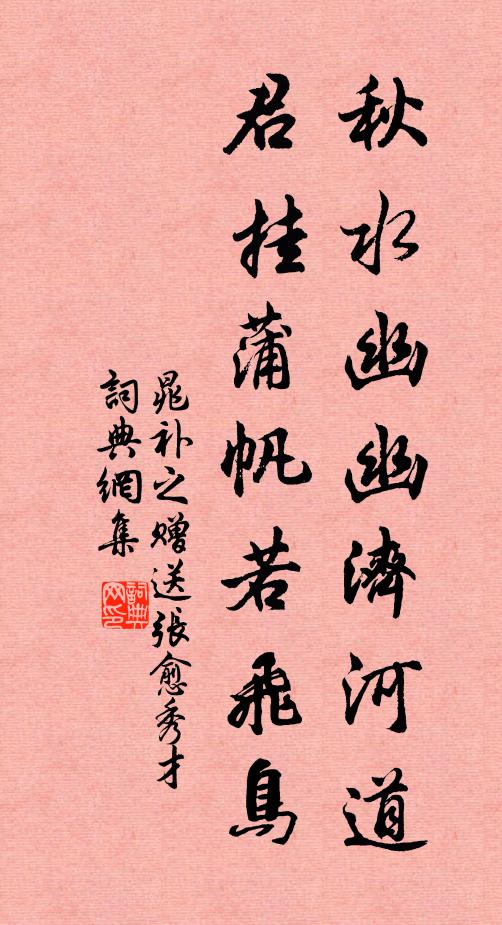 秋水幽幽濟河道
君挂蒲帆若飛鳥
晁补之赠送張愈秀才
詞典網集
詞典网印